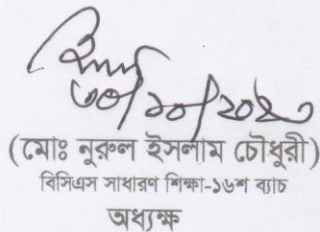 ৩০/১০/২০২৩
(মোঃ নুরুল ইসলাম চৌধুরী)
বিসিএস সাধারণ শিক্ষা-১৬শ ব্যাচ
অধ্যক্ষ